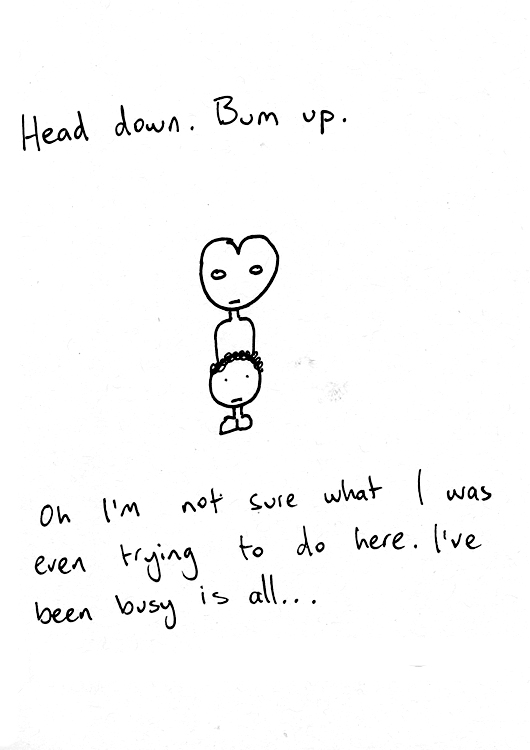 Head down. Bum up.
Oh I'm not sure what I was
even trying to do here. I've
been busy is all...